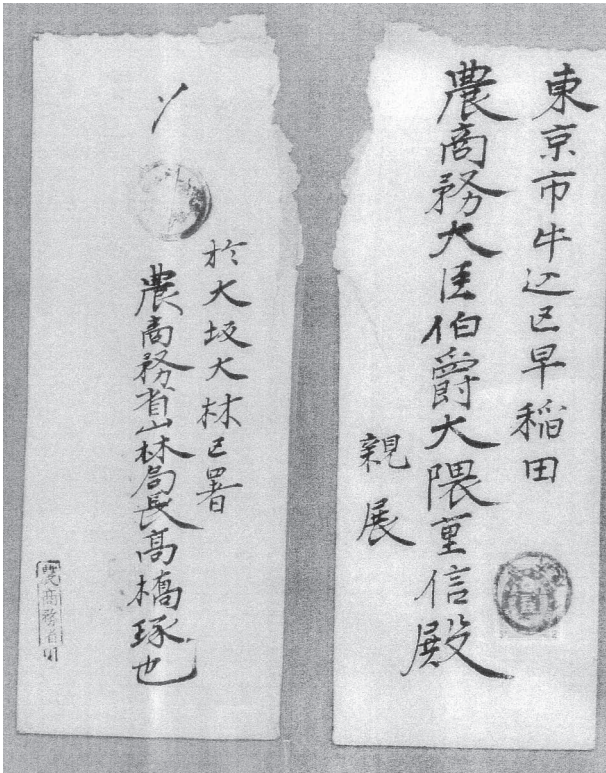 東京市牛込区早稲田
農商務大臣伯爵大隈重信殿
親展
〆
於大坂大林区署
農商務省山林局長高橋琢也
農商務省用